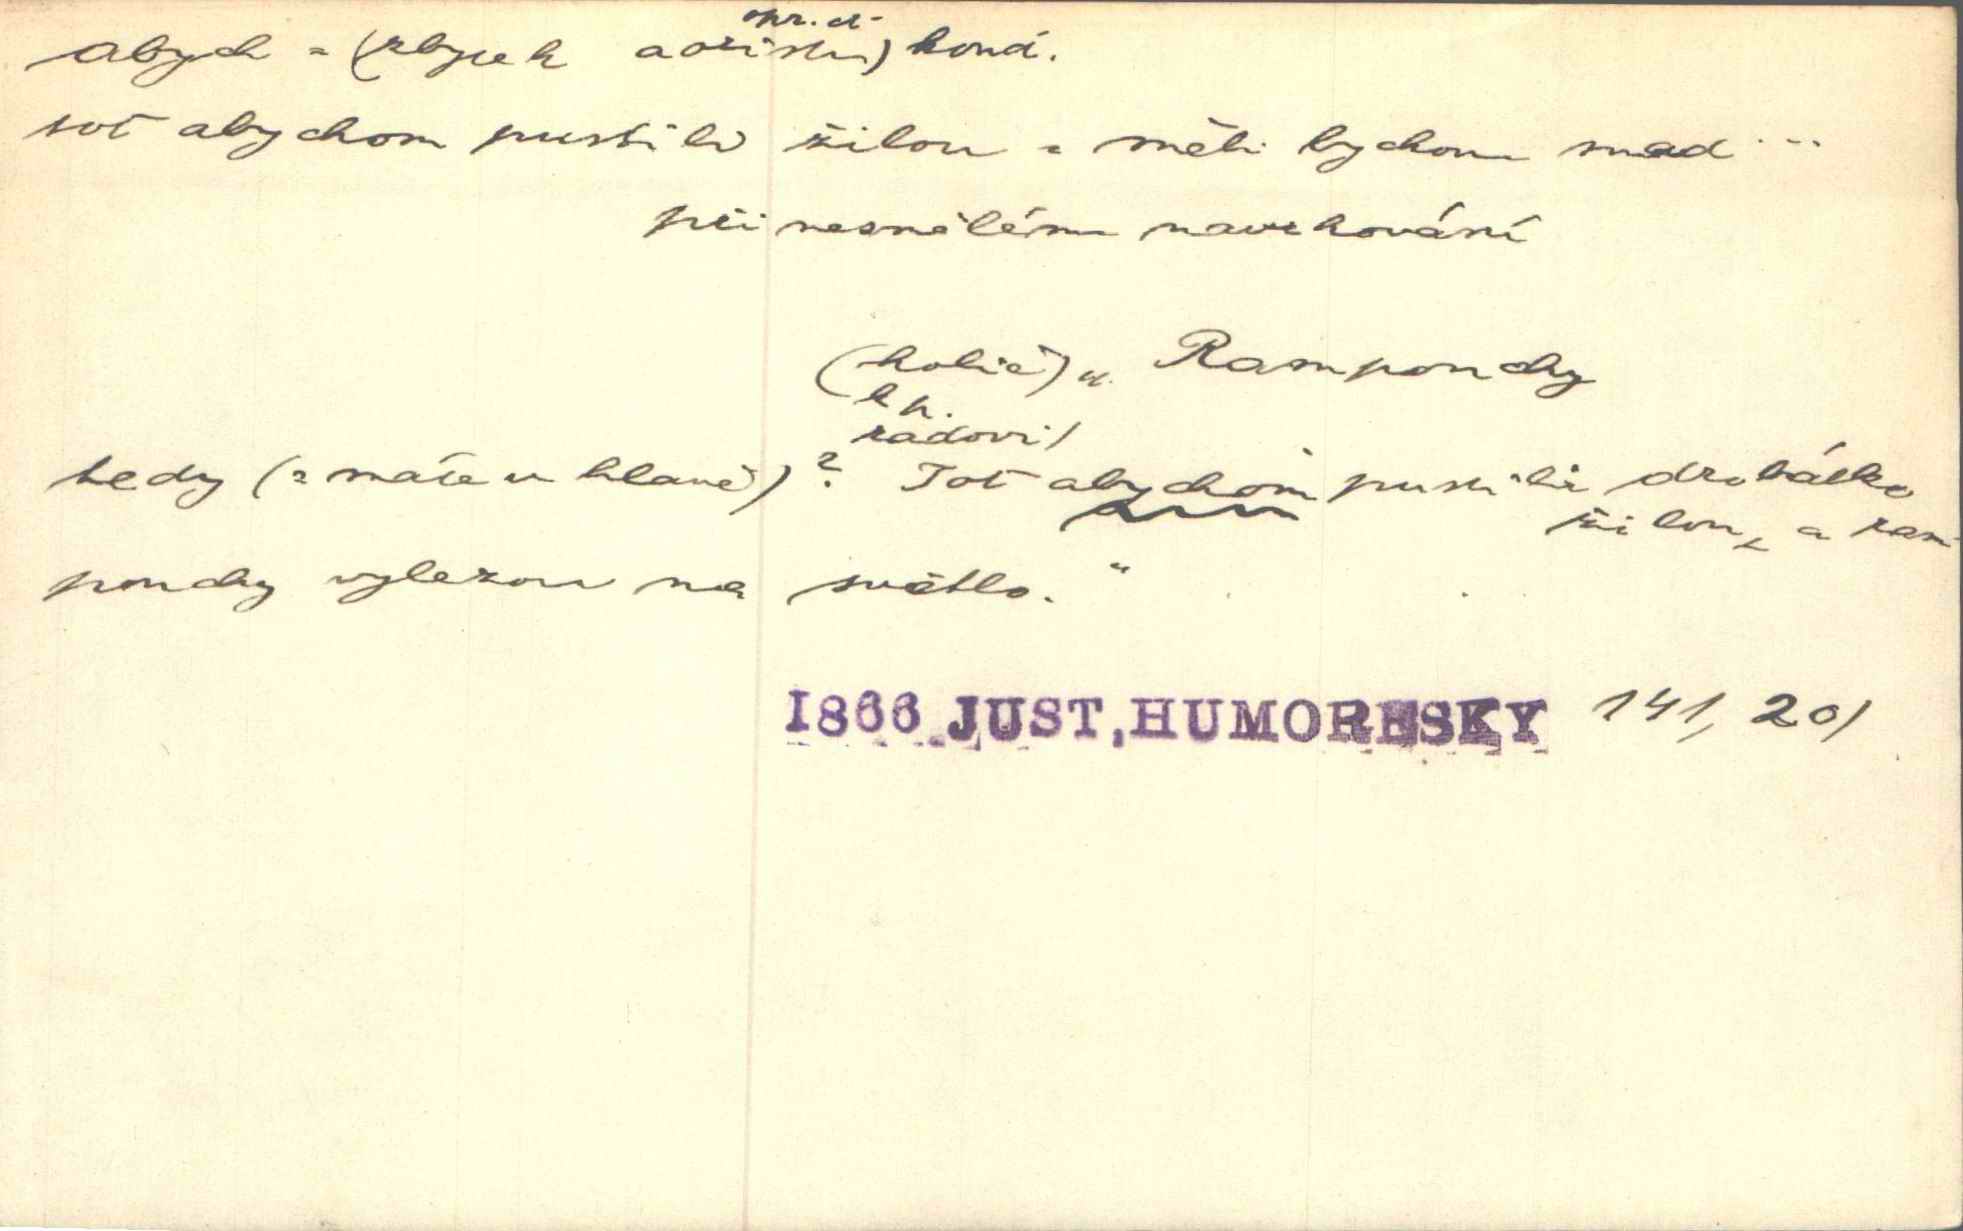 abych = (zbytek aoristu) kond.
toť abychom pustili žilou = měli bychom snad ...
při nesmělém navrhování
(holič) „Rampouchy
k p.
radovi)
tedy (= máte v hlavě)? Toť abychom pustili drobátko
žilou, a ram-
pouchy vylezou na světlo."
1866 JUST, HUMORESKY 141, 20/